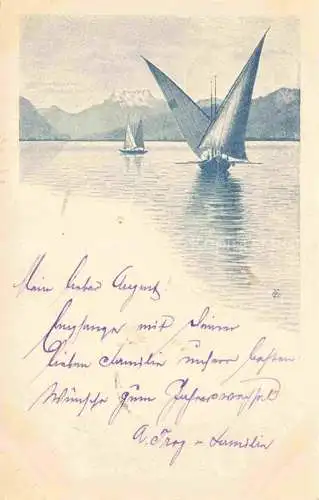 Mein lieber August!
Empfange mit Deiner
lieben Familie unsere besten
Wünsche zum Jahreswechsel
A. Frog u. Familie